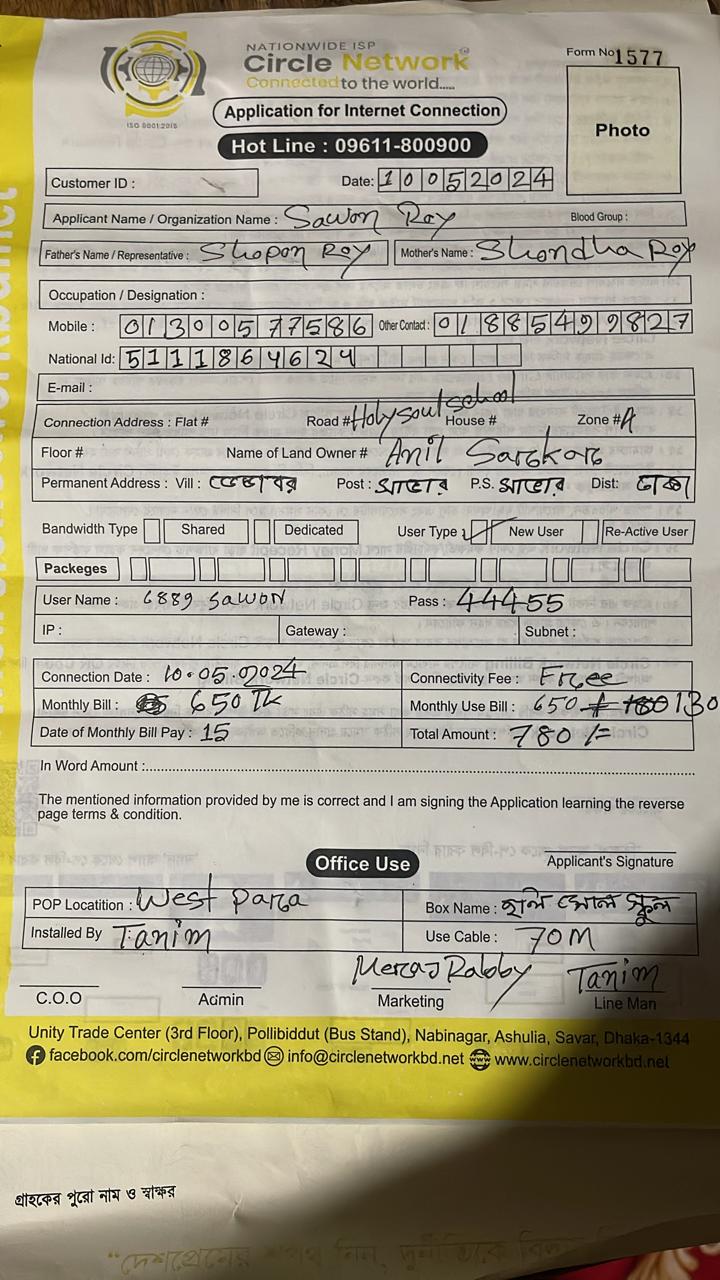 NATIONWIDE ISP
Circle Network
Connected to the world.....
ISO 9001:2015
Form No 1577
Application for Internet Connection
Hot Line : 09611-800900
Photo
Customer ID :
Date: 10052024
Applicant Name / Organization Name : Sawon Roy Blood Group :
Father's Name / Representative : Shopon Roy Mother's Name : Shondha Roy
Occupation / Designation :
Mobile : 01300577586 Other Contact : 01885499827
National Id: 5111864624
E-mail :
Connection Address : Flat # Road # Holy soul school House # Zone # A
Floor # Name of Land Owner # Anil Sarckar
Permanent Address : Vill : ডেন্ডাবর Post : সাভার P.S. সাভার Dist: ঢাকা
Bandwidth Type Shared Dedicated User Type New User Re-Active User
Packeges
User Name : 6889 SAWON Pass : 44455
IP : Gateway : Subnet :
Connection Date : 10.05.2024 Connectivity Fee : Free
Monthly Bill : 650 TK Monthly Use Bill : 650 + 130
Date of Monthly Bill Pay : 15 Total Amount : 780 /=
In Word Amount :
The mentioned information provided by me is correct and I am signing the Application learning the reverse
page terms & condition.
Office Use
Applicant's Signature
POP Locatition : West para Box Name : হলি সোল স্কুল
Installed By Tanim Use Cable : 70M
Meraj Rabby Tanim
C.O.O Admin Marketing Line Man
Unity Trade Center (3rd Floor), Pollibiddut (Bus Stand), Nabinagar, Ashulia, Savar, Dhaka-1344
facebook.com/circlenetworkbd info@circlenetworkbd.net www.circlenetworkbd.net
গ্রাহকের পুরো নাম ও স্বাক্ষর
"দেশপ্রেমের শপথ নিন, দুর্নীতিকে বিদায়